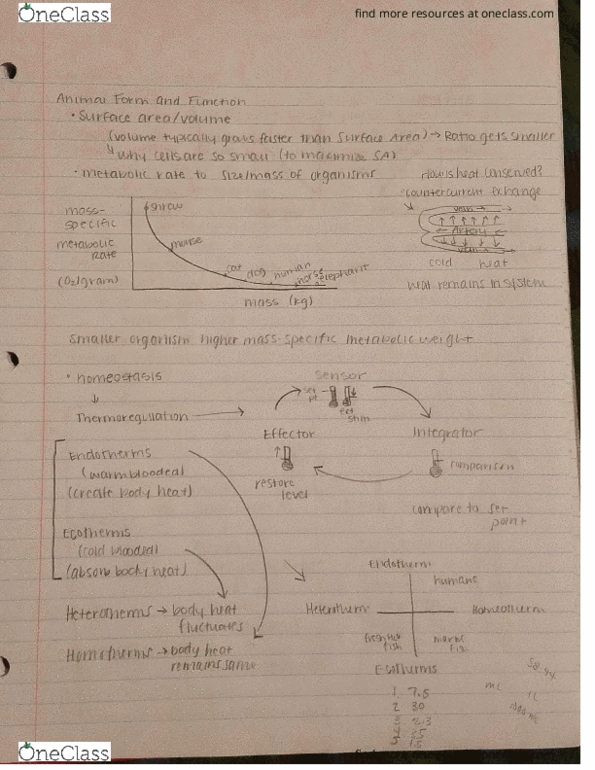 OneClass
find more resources at oneclass.com
Animal Form and Function
• Surface area/volume
(volume typically grows faster than Surface Area) → Ratio gets smaller
↳ why cells are so small (to maximize SA)
• metabolic rate to size/mass of organisms
How is heat conserved?
countercurrent Exchange
mass-
specific
metabolic
rate
(O2/gram)
shrew
mouse
cat dog human horse elephant
mass (kg)
vein →
← Artery ←
vein
cold heat
heat remains in system
Smaller organism higher mass-specific metabolic weight
• homeostasis
↓
Thermoregulation →
Sensor
set
pt
ext
stim
Effector
restore
level
Integrator
comparison
compare to set
point
Endotherms
(warmblooded)
(create body heat)
Ectotherms
(cold blooded)
(absorb body heat)
Heterotherms → body heat
fluctuates
Homeotherms → body heat
remains same
Endotherm
humans
Heterotherm
Homeotherm
freshwater
fish
marine
fish
Ectotherms
1 7.5
2 30
mL
1L
OneClass